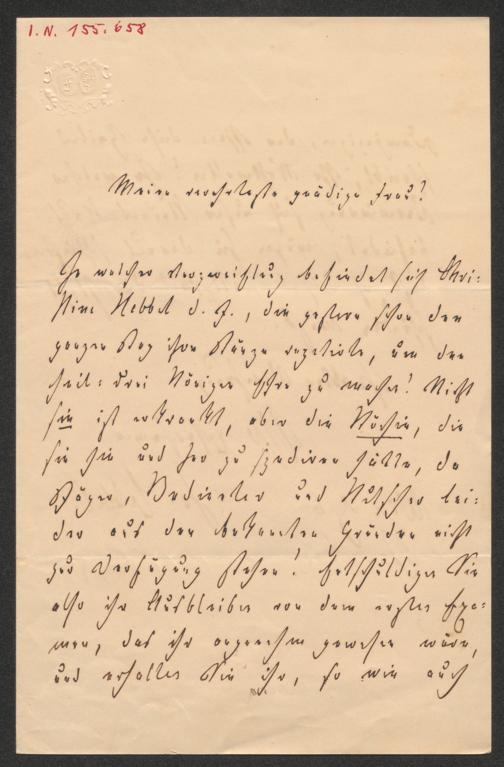 I.N. 155.658
Meine verehrteste gnädige Frau!
In welcher Verzweiflung befindet sich Chri-
stine Hebbel d. J., die gestern schon den
ganzen Tag ihre Tänze repetirte, um den
heil: drei Königen Ehre zu machen! Nicht
sie ist erkrankt, aber die Köchin, die
sie hin und her zu spediren hätte, da
Jäger, Bedienter und Kutscher lei-
der aus den bekannten Gründen nicht
zur Verfügung stehen! Entschuldigen Sie
also ihr Ausbleiben von dem ersten
das ihr angenehm gewesen wäre,
und erhalten Sie ihr, so wie auch